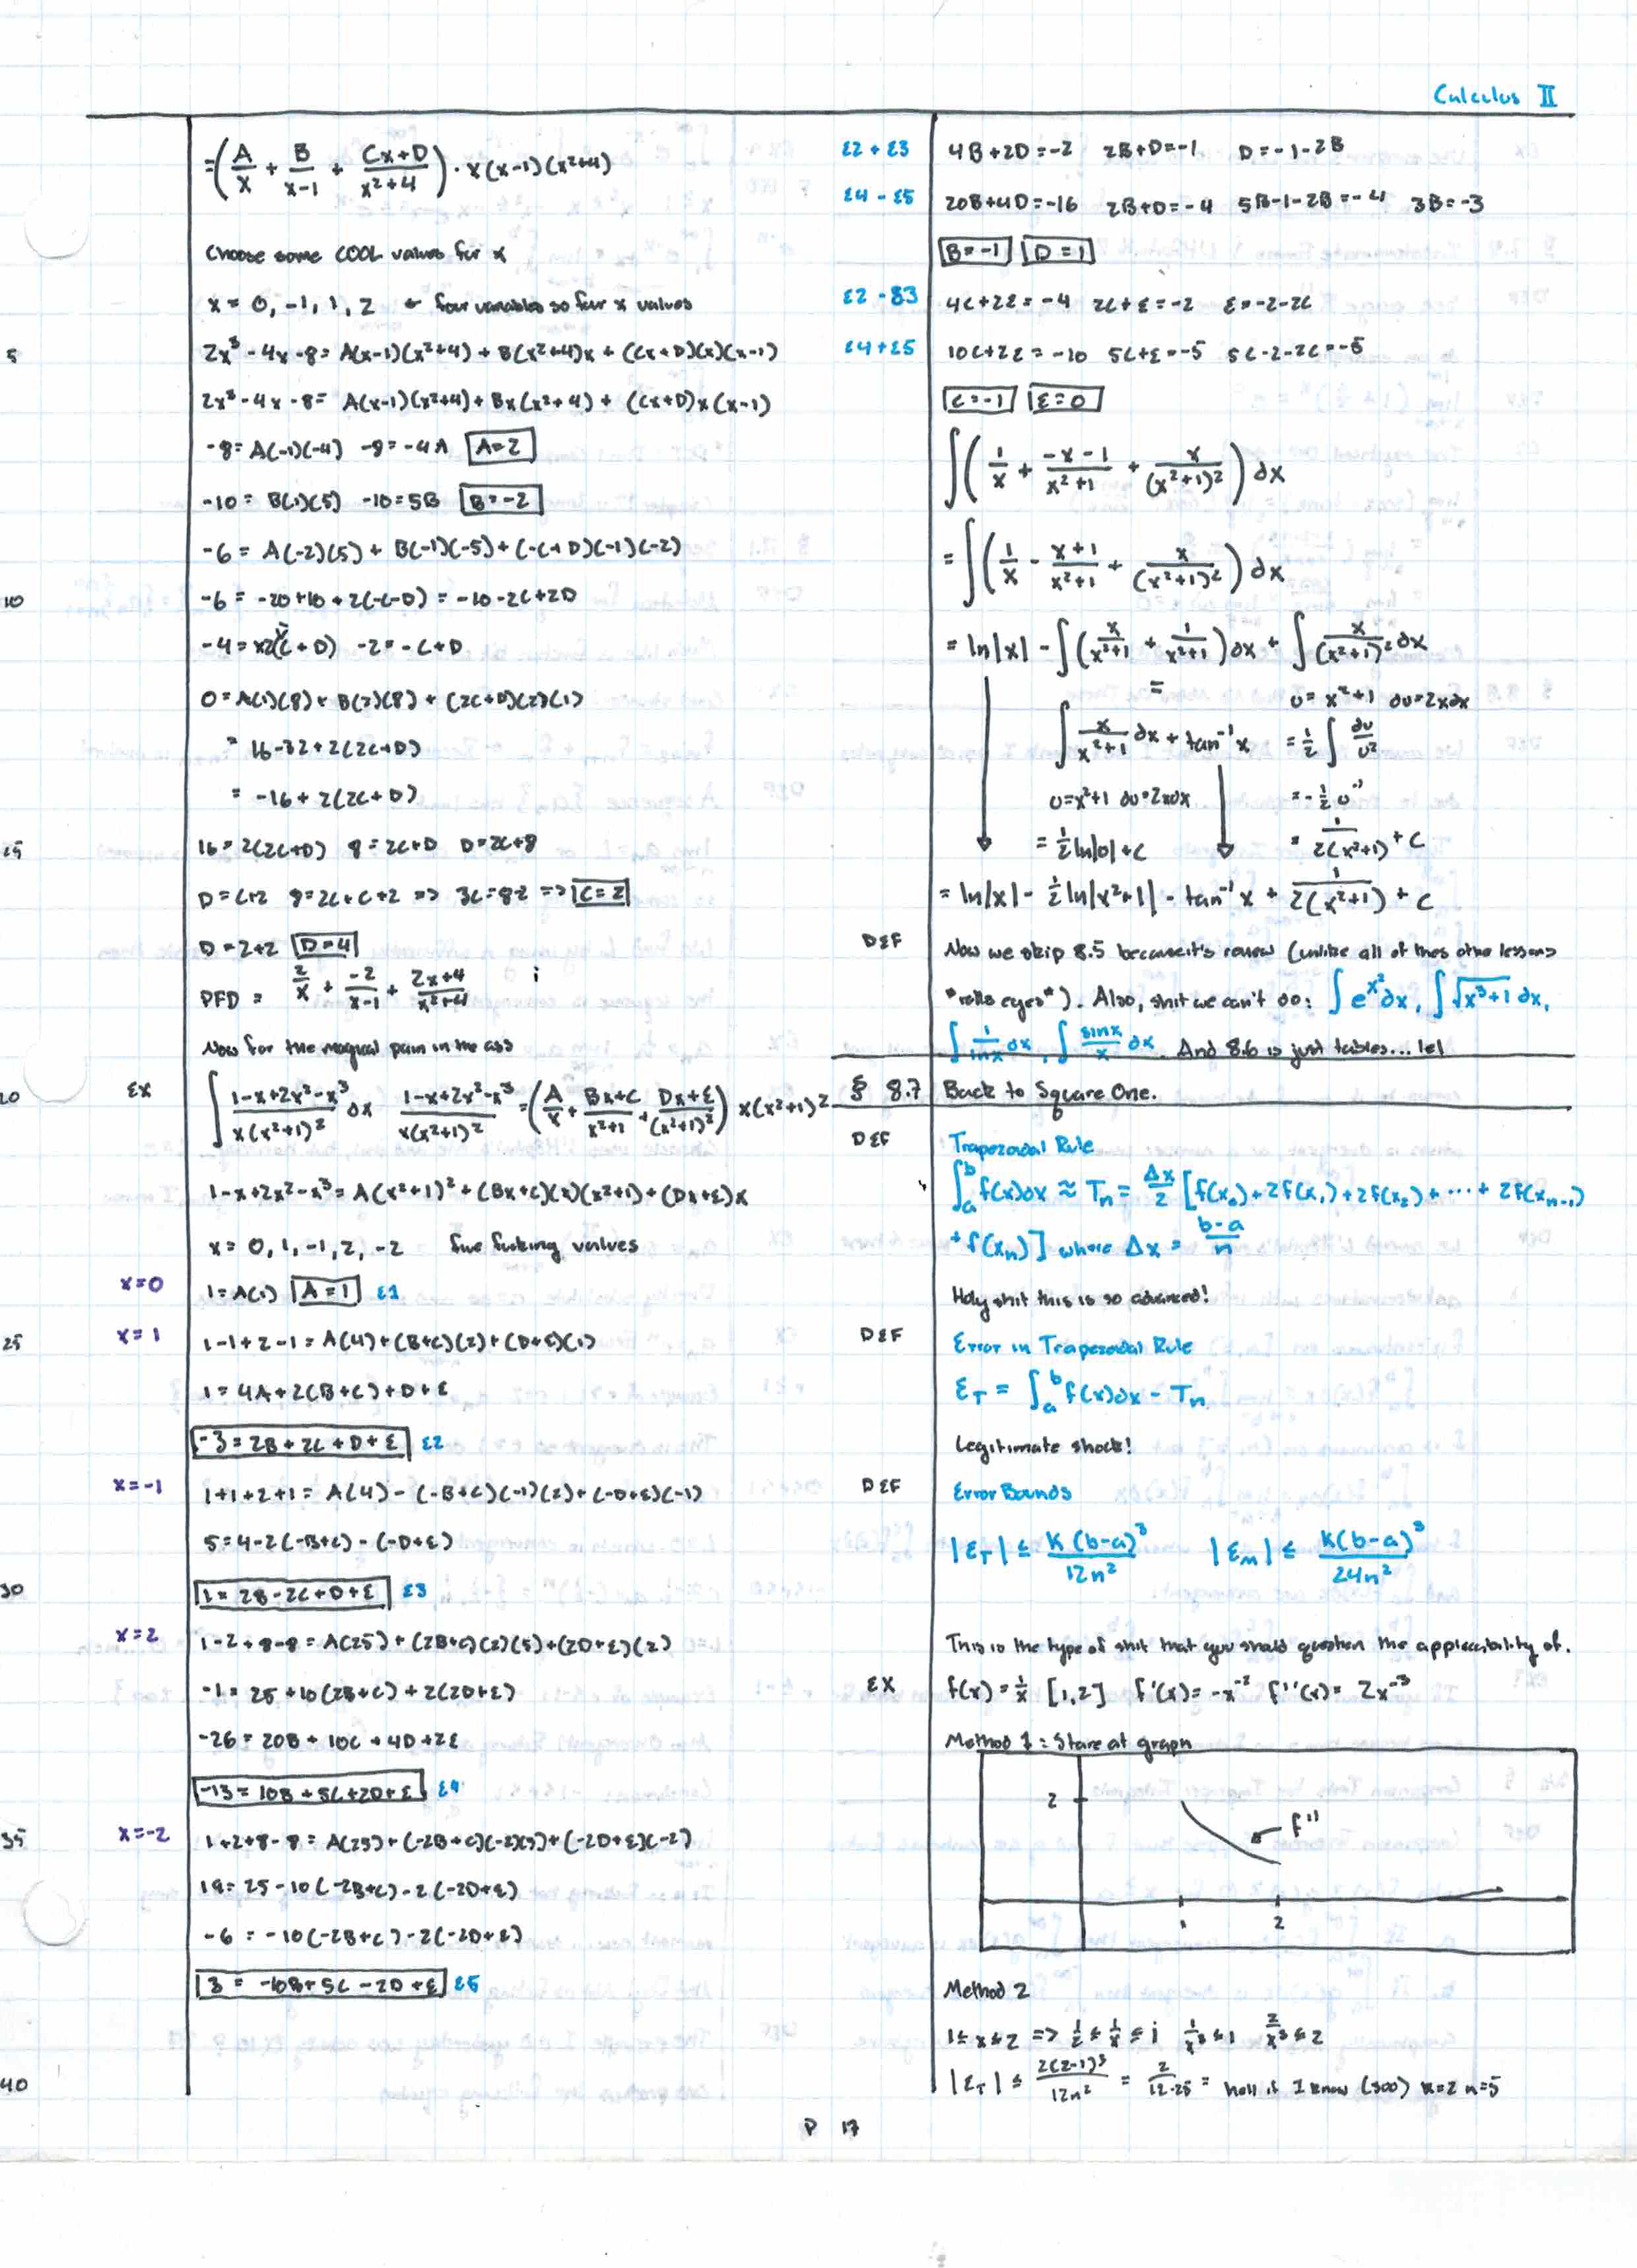 Calculus II
=(A/x + B/(x-1) + (Cx+D)/(x²+4)) · x(x-1)(x²+4)
Choose some COOL values for x
x = 0, -1, 1, 2 ← four variables so four x values
5
2x³ - 4x - 8 = A(x-1)(x²+4) + B(x²+4)x + (Cx+D)(x)(x-1)
2x³ - 4x - 8 = A(x-1)(x²+4) + Bx(x²+4) + (Cx+D)x(x-1)
-8 = A(-1)(-4) -8 = -4A A=2
-10 = B(1)(5) -10 = 5B B=-2
-6 = A(-2)(5) + B(-1)(-5) + (-C+D)(-1)(-2)
10
-6 = -20+10+2(-C-D) = -10-2C+2D
-2 = -C+D
0 = A(1)(8) + B(2)(8) + (2C+D)(2)(1)
= 16-32+2(2C+D)
= -16+2(2C+D)
15
16 = 2(2C+D) 8 = 2C+D D=2C+8
D=C+2 8=2C+C+2 => 3C=8-2 => C=2
D = 2+2 D=4
PFD = 2/x + -2/(x-1) + (2x+4)/(x²+4)
Now for the magical pain in the ass
20
EX ∫ (1-x+2x²-x³)/(x(x²+1)²) dx (1-x+2x²-x³)/(x(x²+1)²) = (A/x + (Bx+C)/(x²+1) + (Dx+E)/(x²+1)²) x(x²+1)²
1-x+2x²-x³ = A(x²+1)² + (Bx+C)(x)(x²+1) + (Dx+E)x
x = 0, 1, -1, 2, -2 five fucking values
x=0 1 = A(1) A=1 E1
25
x=1 1-1+2-1 = A(4)+(B+C)(2)+(D+E)(1)
1 = 4A+2(B+C)+D+E
-3 = 2B+2C+D+E E2
x=-1 1+1+2+1 = A(4) - (-B+C)(-1)(2)+(-D+E)(-1)
5 = 4-2(-B+C)-(-D+E)
30
1 = 2B-2C+D+E E3
x=2 1-2+8-8 = A(25)+(2B+C)(2)(5)+(2D+E)(2)
-1 = 25+10(2B+C)+2(2D+E)
-26 = 20B+10C+4D+2E
-13 = 10B+5C+2D+E E4
35
x=-2 1+2+8-8 = A(25)+(-2B+C)(-2)(5)+(-2D+E)(-2)
19 = 25-10(-2B+C)-2(-2D+E)
-6 = -10(-2B+C)-2(-2D+E)
3 = -10B+5C-2D+E E5
40
E2+E3 4B+2D=-2 2B+D=-1 D=-1-2B
E4-E5 20B+4D=-16 2B+D=-4 5B-1-2B=-4 3B=-3
B=-1 D=1
E2-E3 4C+2E=-4 2C+E=-2 E=-2-2C
E4+E5 10C+2E=-10 5C+E=-5 5C-2-2C=-5
C=-1 E=0
∫(1/x + (-x-1)/(x²+1) + x/(x²+1)²) dx
= ∫(1/x - (x+1)/(x²+1) + x/(x²+1)²) dx
= ln|x| - ∫(x/(x²+1) + 1/(x²+1)) dx + ∫ x/(x²+1)² dx
= u = x²+1 du=2xdx
∫ x/(x²+1) dx + tan⁻¹x = 1/2 ∫ du/u²
u=x²+1 du=2xdx = -1/2 u⁻¹
= 1/2 ln|u|+C = 1/(2(x²+1)) + C
= ln|x| - 1/2 ln|x²+1| - tan⁻¹x + 1/(2(x²+1)) + C
DEF Now we skip 8.5 because it's review (unlike all of thes other lessons
*rolls eyes*). Also, shit we can't do: ∫e^x² dx, ∫√(x³+1) dx,
∫ 1/lnx dx, ∫ sinx/x dx And 8.6 is just tables... lel
§ 8.7 Back to Square One.
DEF Trapezoidal Rule
∫ₐᵇ f(x)dx ≈ Tₙ = Δx/2 [f(x₀)+2f(x₁)+2f(x₂)+···+2f(xₙ₋₁)
+f(xₙ)] where Δx = (b-a)/n
Holy shit this is so advanced!
DEF Error in Trapezoidal Rule
E_T = ∫ₐᵇ f(x)dx - Tₙ
Legitimate shock!
DEF Error Bounds
|E_T| ≤ K(b-a)³/12n² |E_m| ≤ K(b-a)³/24n²
This is the type of shit that you should question the applicability of.
EX f(x) = 1/x [1,2] f'(x) = -x⁻² f''(x) = 2x⁻³
Method 1: Stare at graph
2
f''
1 2
Method 2
1≤x≤2 => 1/2 ≤ 1/x ≤ 1 1/x³ ≤ 1 2/x³ ≤ 2
|E_T| ≤ 2(2-1)³/12n² = 2/(12·25) = hell if I know (300) K=2 n=5
P 17